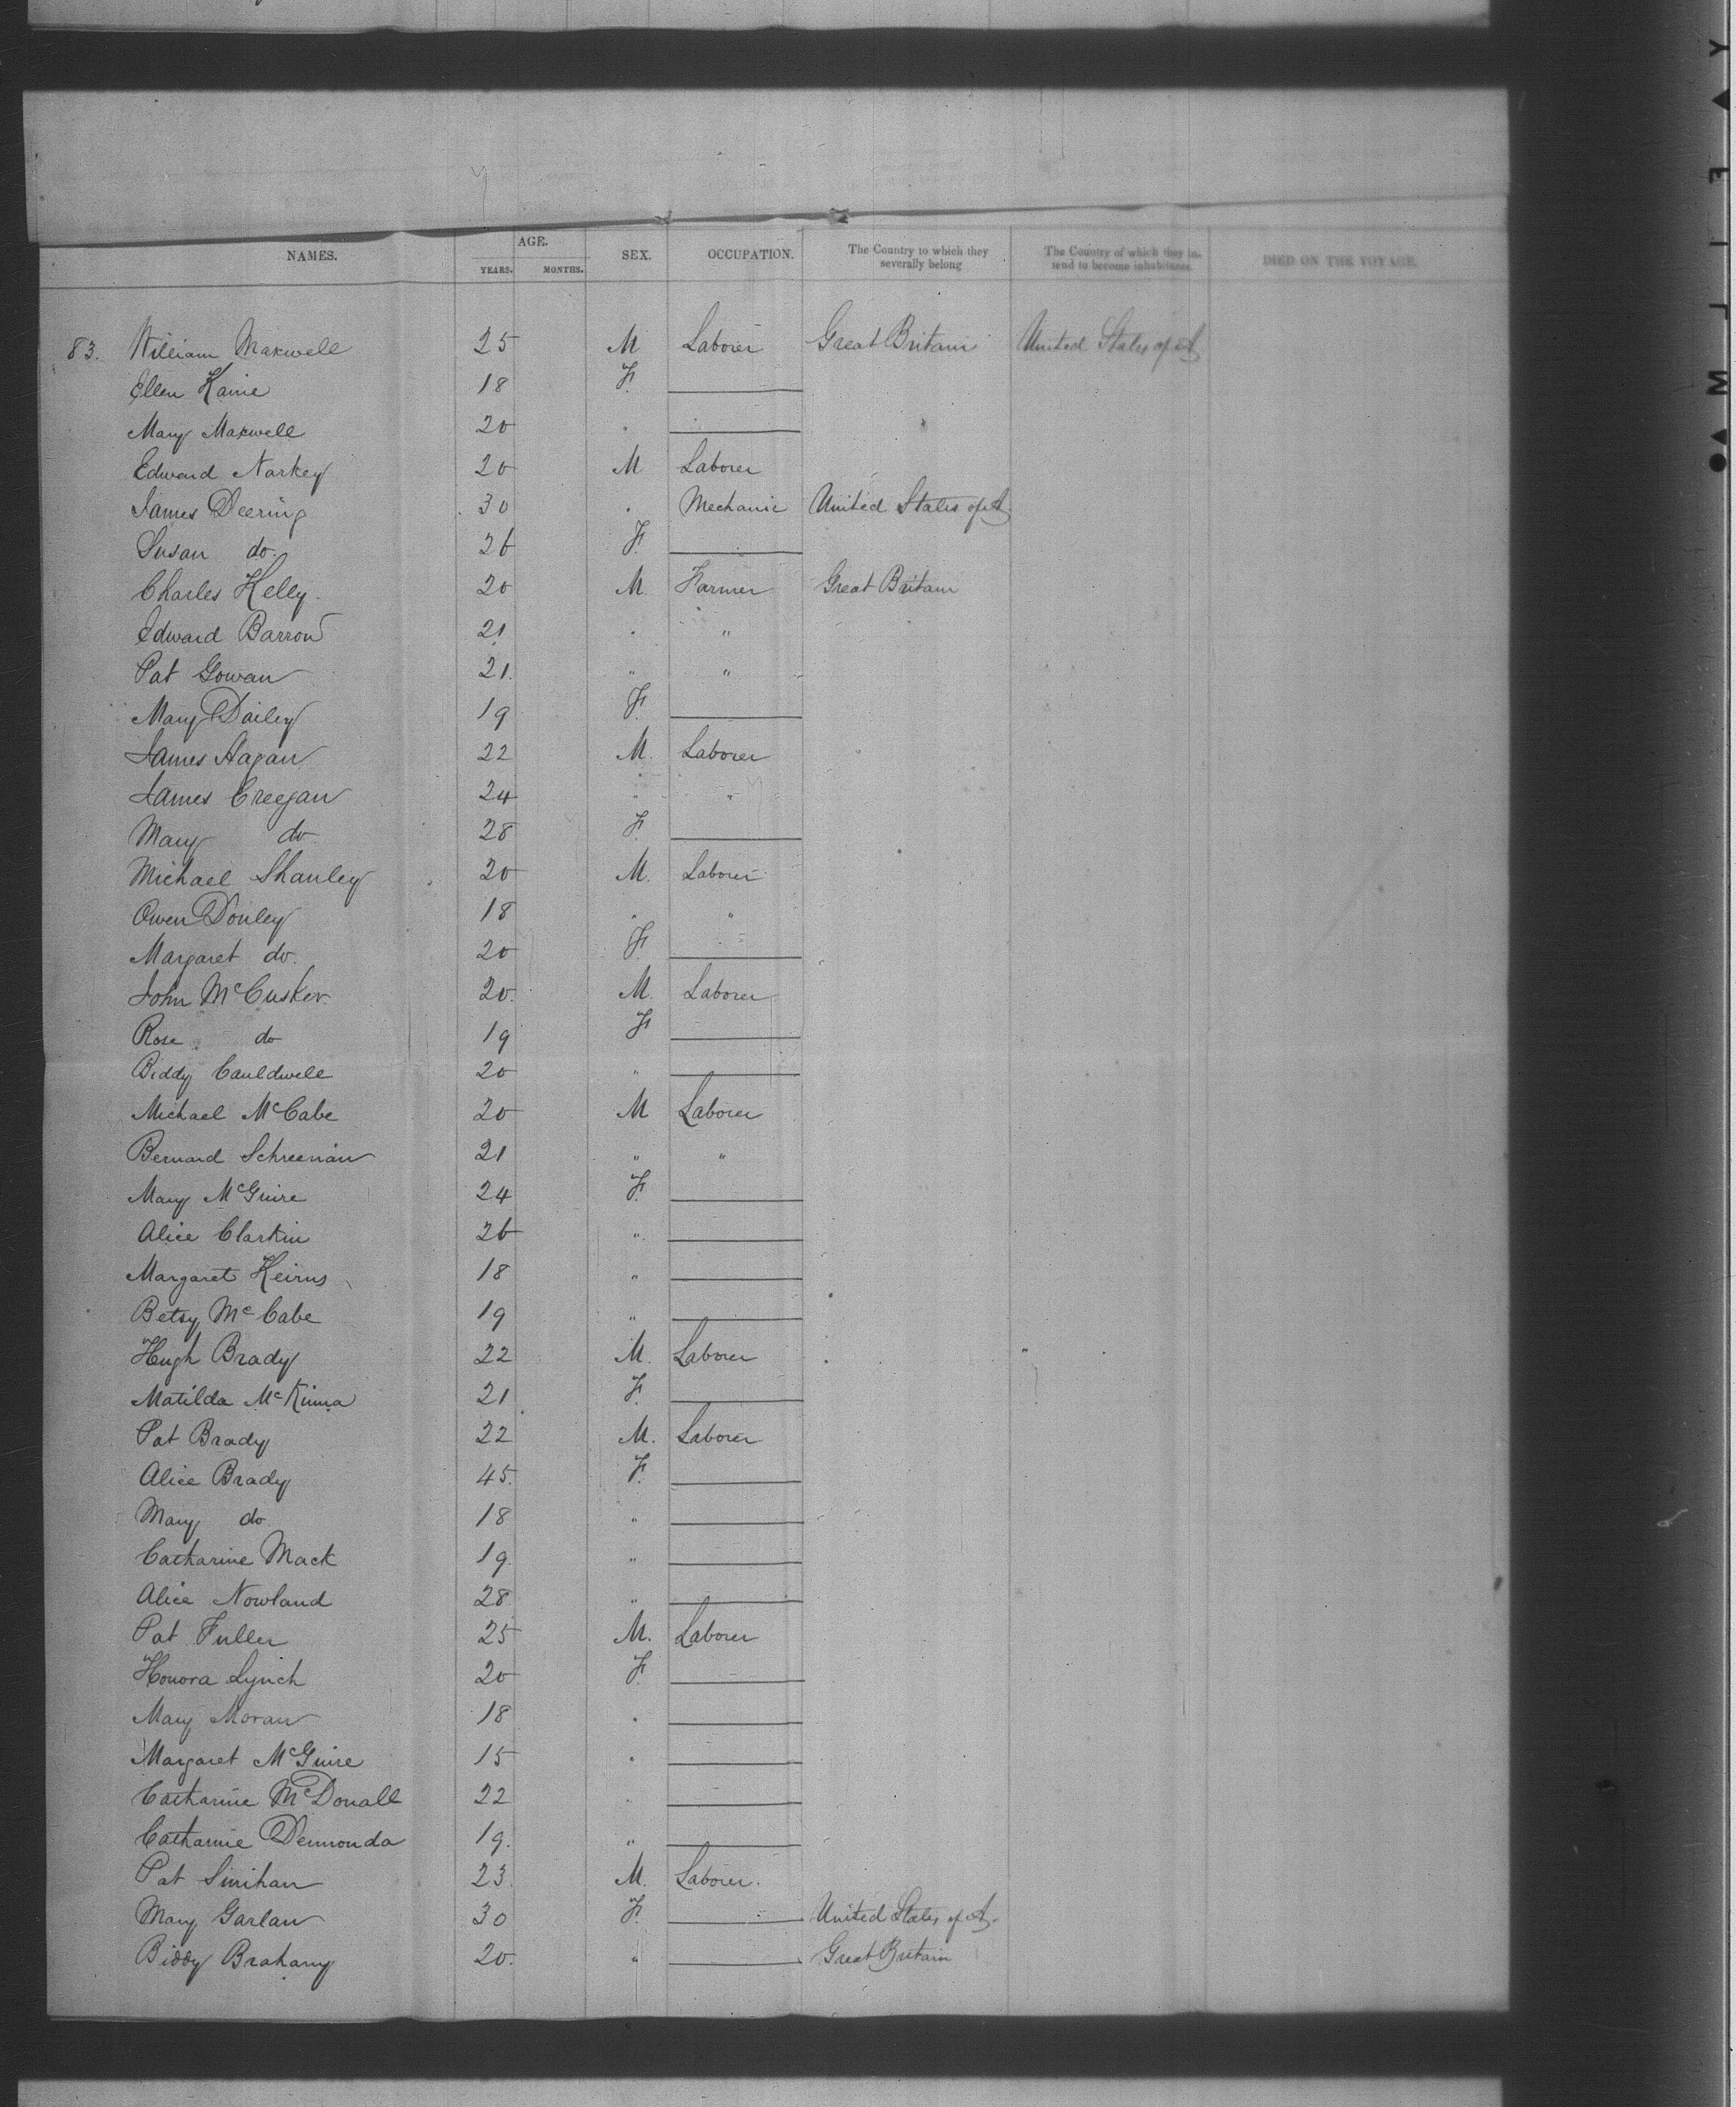 NAMES. AGE. YEARS. MONTHS. SEX. OCCUPATION. The Country to which they severally belong The Country of which they intend to become inhabitants. DIED ON THE VOYAGE.
83. William Maxwell 25 M Laborer Great Britain United States of A
Ellen Kaine 18 F.
Mary Maxwell 20 "
Edward Narkey 20 M Laborer
James Deering 30 " Mechanic United States of A
Susan do. 26 F.
Charles Kelly. 20 M. Farmer Great Britain
Edward Barron 21 " "
Pat Gowan 21. " "
Mary Dailey 19 F.
James Hagan 22 M. Laborer
James Creegan 24 " "
Mary do 28 F.
Michael Shanley 20 M. Laborer
Owen Donley 18 " "
Margaret do. 20 F.
John McCusker. 20. M. Laborer
Rose do 19 F.
Biddy Cauldwell 20 "
Michael McCabe 20 M Laborer
Bernard Schreenan 21 " "
Mary McGuire 24 F.
Alice Clarkin 26 "
Margaret Keirns 18 "
Betsy McCabe 19 "
Hugh Brady 22 M. Laborer
Matilda McKinna 21 F.
Pat Brady 22 M. Laborer
Alice Brady 45. F.
Mary do. 18 "
Catharine Mack 19. "
Alice Nowland 28 "
Pat Fuller 25 M. Laborer
Honora Lynch 20 F.
Mary Moran 18 "
Margaret McGuire 15 "
Catharine McDonall 22 "
Catharine Dennonda 19. "
Pat Sinihan 23. M. Laborer.
Mary Garlan 30 F. United States of A.
Biddy Brahany 20. " Great Britain